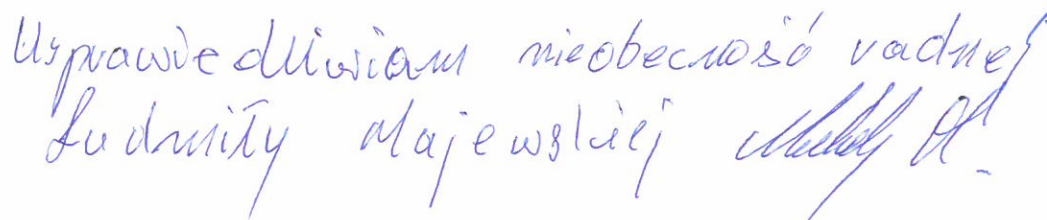 Usprawiedliwiam nieobecność radnej
Ludmiły Majewskiej